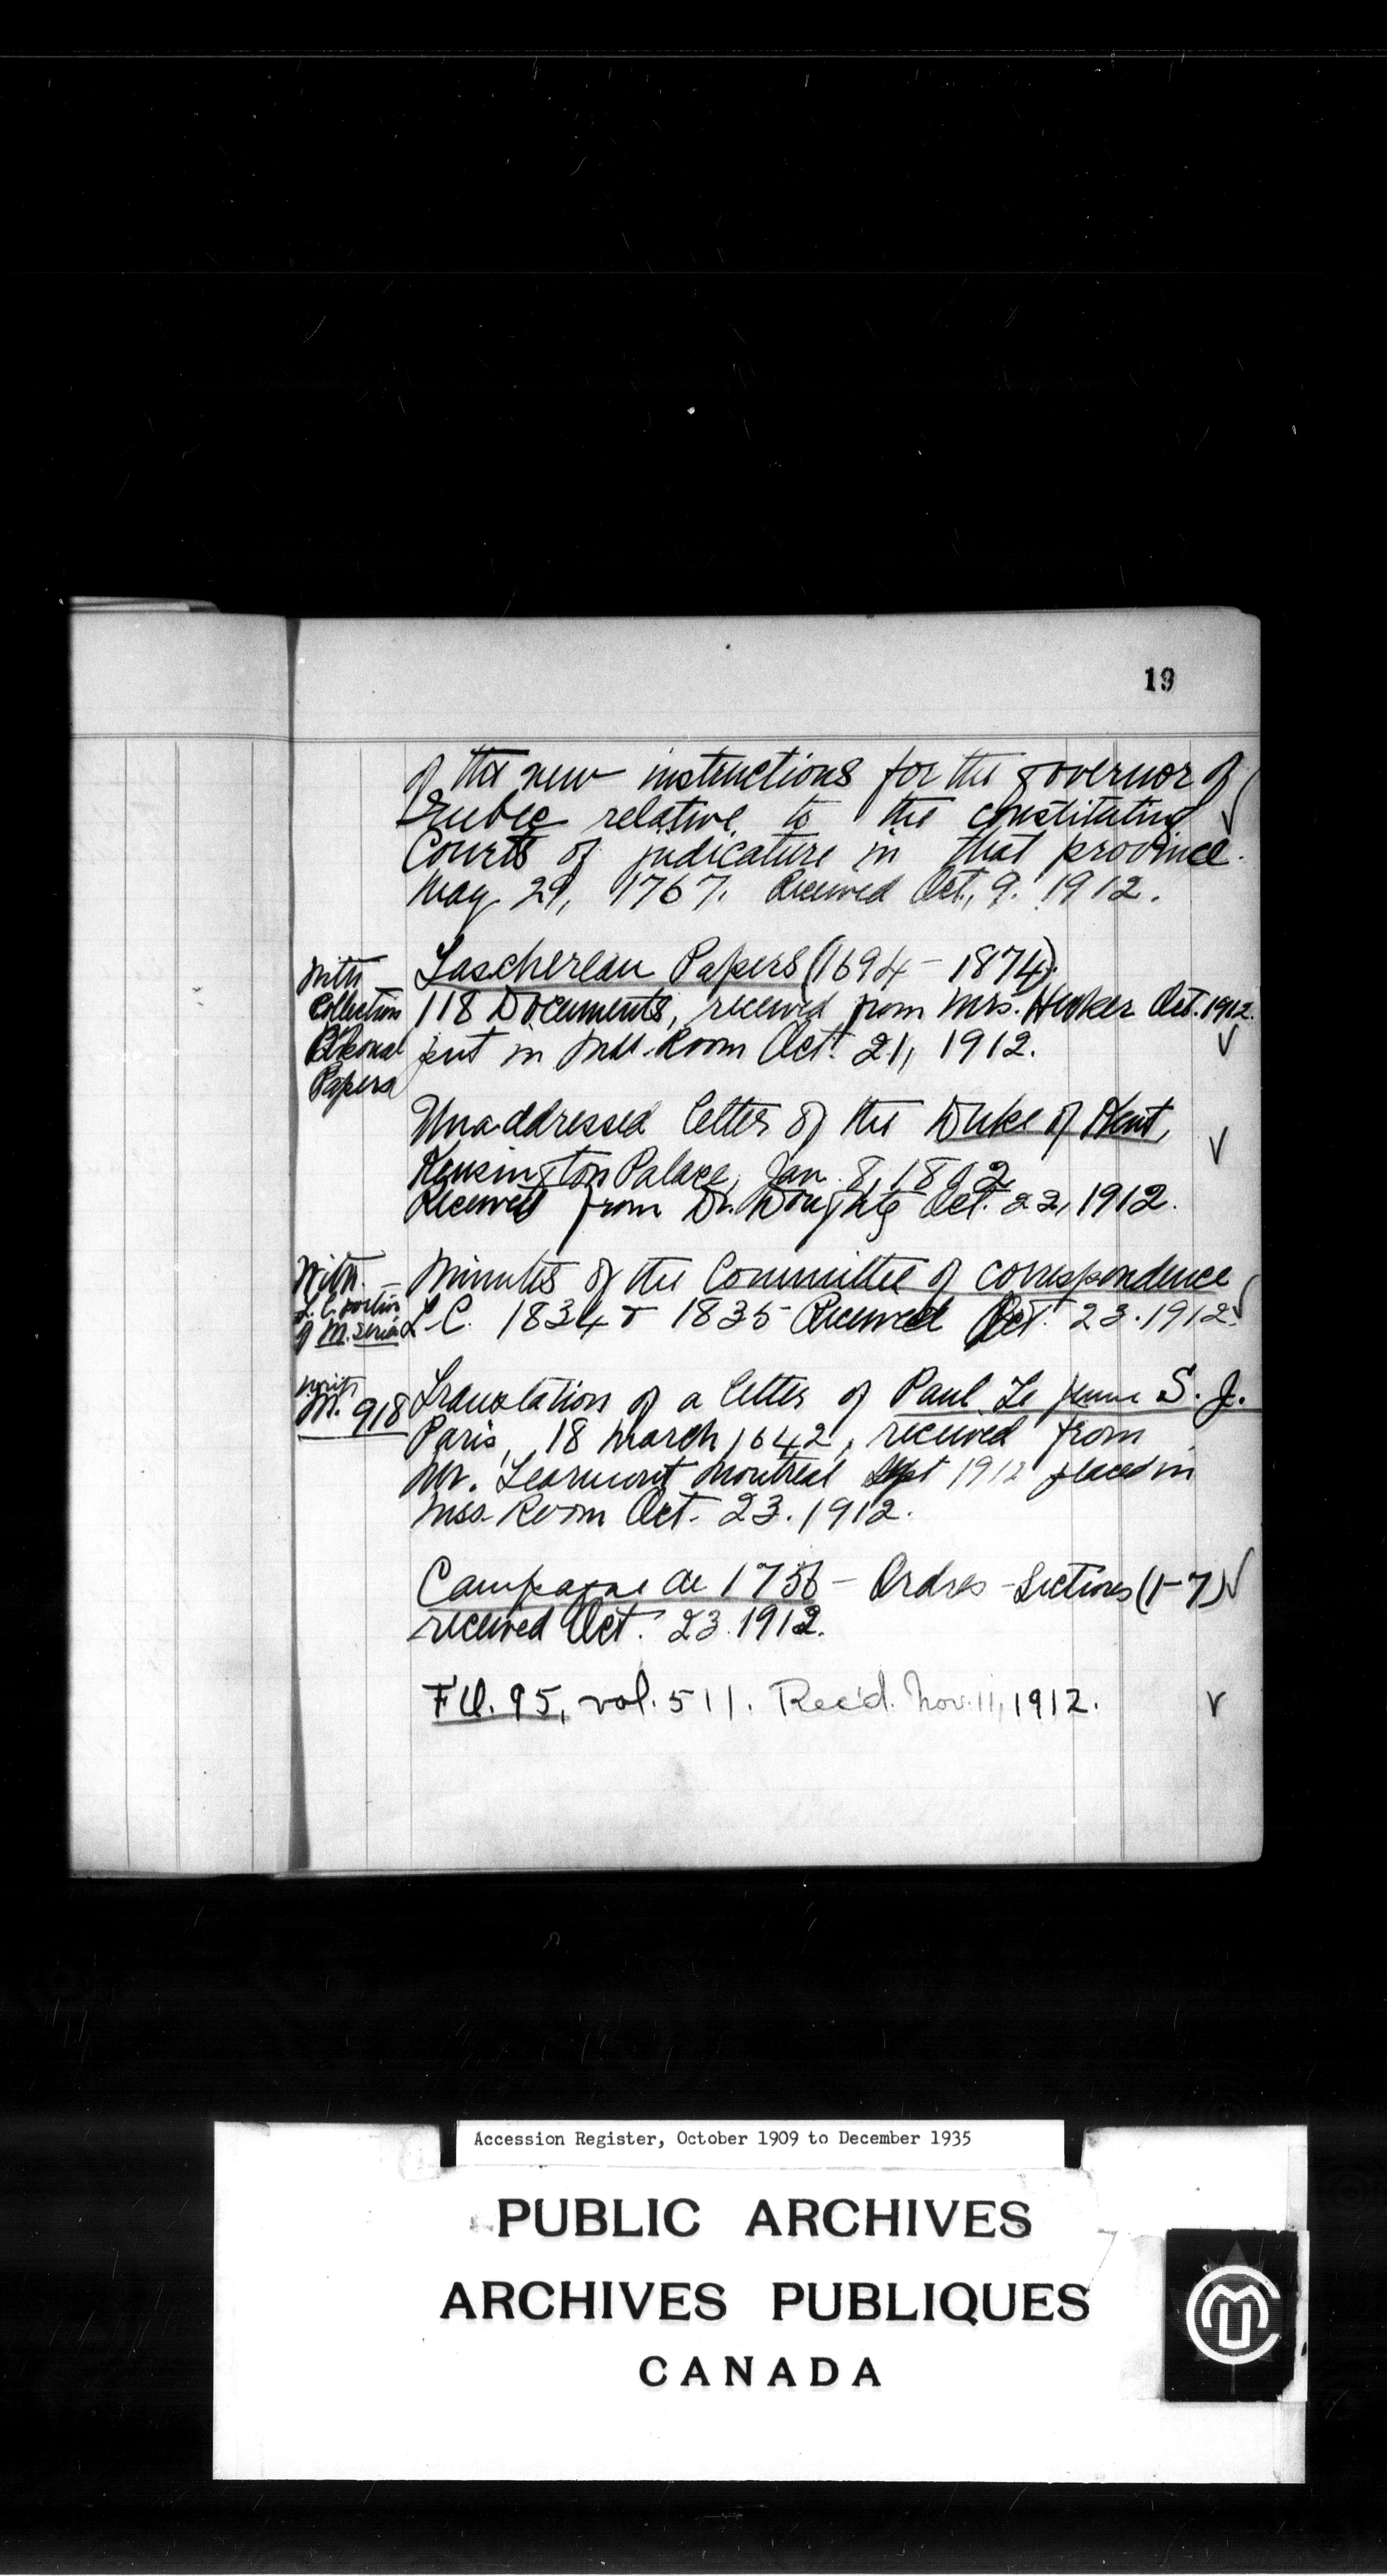 19
of the new instructions for the governor of
Quebec relative to the constituting
Courts of judicature in that province.
May 29, 1767. Received Oct. 9. 1912.
With
Collection
Personal
Papers
Taschereau Papers (1694 - 1874)
118 Documents, received from Mrs. Hooker Oct. 1912.
put in MSS. Room Oct. 21, 1912.
Unaddressed letter of the Duke of Kent,
Kensington Palace, Jan. 8, 1812
Received from Dr. Doughty Oct. 22, 1912.
With
L. C. portion
of M. Series
Minutes of the Committee of correspondence
L.C. 1834 & 1835 Received Oct. 23. 1912.
with
M. 918
Translation of a letter of Paul Le jeune S. J.
Paris, 18 March 1642, received from
Mr. Learmont Montreal Sept 1912 placed in
Mss. Room Oct. 23. 1912.
Campagne de 1756 - Ordres - Sections (1-7)
received Oct. 23. 1912.
F.O. 95, vol. 511. Rec'd. Nov. 11, 1912.
Accession Register, October 1909 to December 1935
PUBLIC ARCHIVES
ARCHIVES PUBLIQUES
CANADA